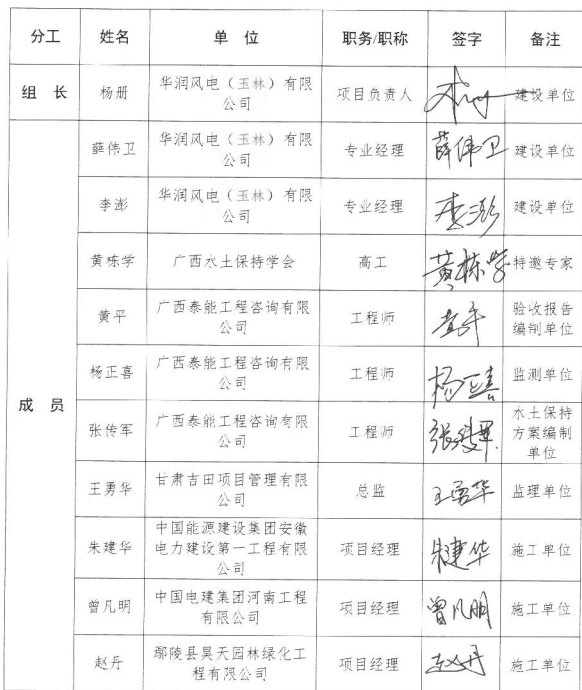 分工 姓名 单 位 职务/职称 签字 备注
组 长 杨册 华润风电（玉林）有限公司 项目负责人 建设单位
成 员
薛伟卫 华润风电（玉林）有限公司 专业经理 薛伟卫 建设单位
李澎 华润风电（玉林）有限公司 专业经理 李澎 建设单位
黄栋学 广西水土保持学会 高工 黄栋学 特邀专家
黄平 广西泰能工程咨询有限公司 工程师 黄平 验收报告编制单位
杨正喜 广西泰能工程咨询有限公司 工程师 杨正喜 监测单位
张传军 广西泰能工程咨询有限公司 工程师 水土保持方案编制单位
王勇华 甘肃吉田项目管理有限公司 总监 王勇华 监理单位
朱建华 中国能源建设集团安徽电力建设第一工程有限公司 项目经理 朱建华 施工单位
曾凡明 中国电建集团河南工程有限公司 项目经理 曾凡明 施工单位
赵丹 鄢陵县昊天园林绿化工程有限公司 项目经理 赵丹 施工单位